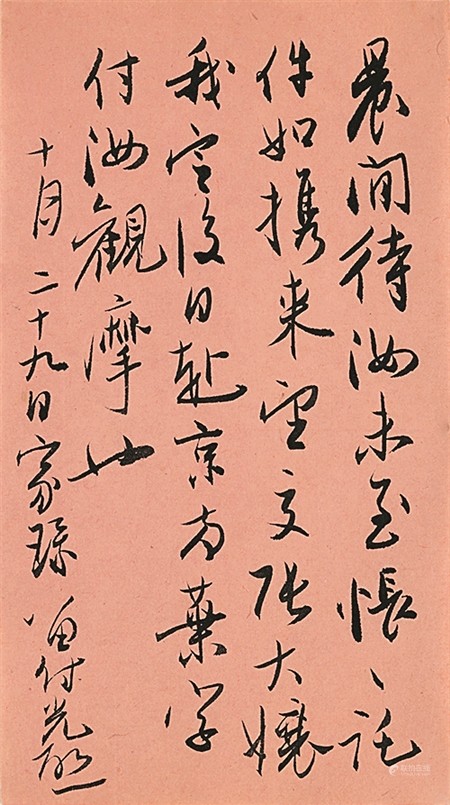 晨间待汝未至怅、託
件如携来望交张大孃
我定后日赴京有叶字
付汝观摩也
十月二十九日家琭留付光启